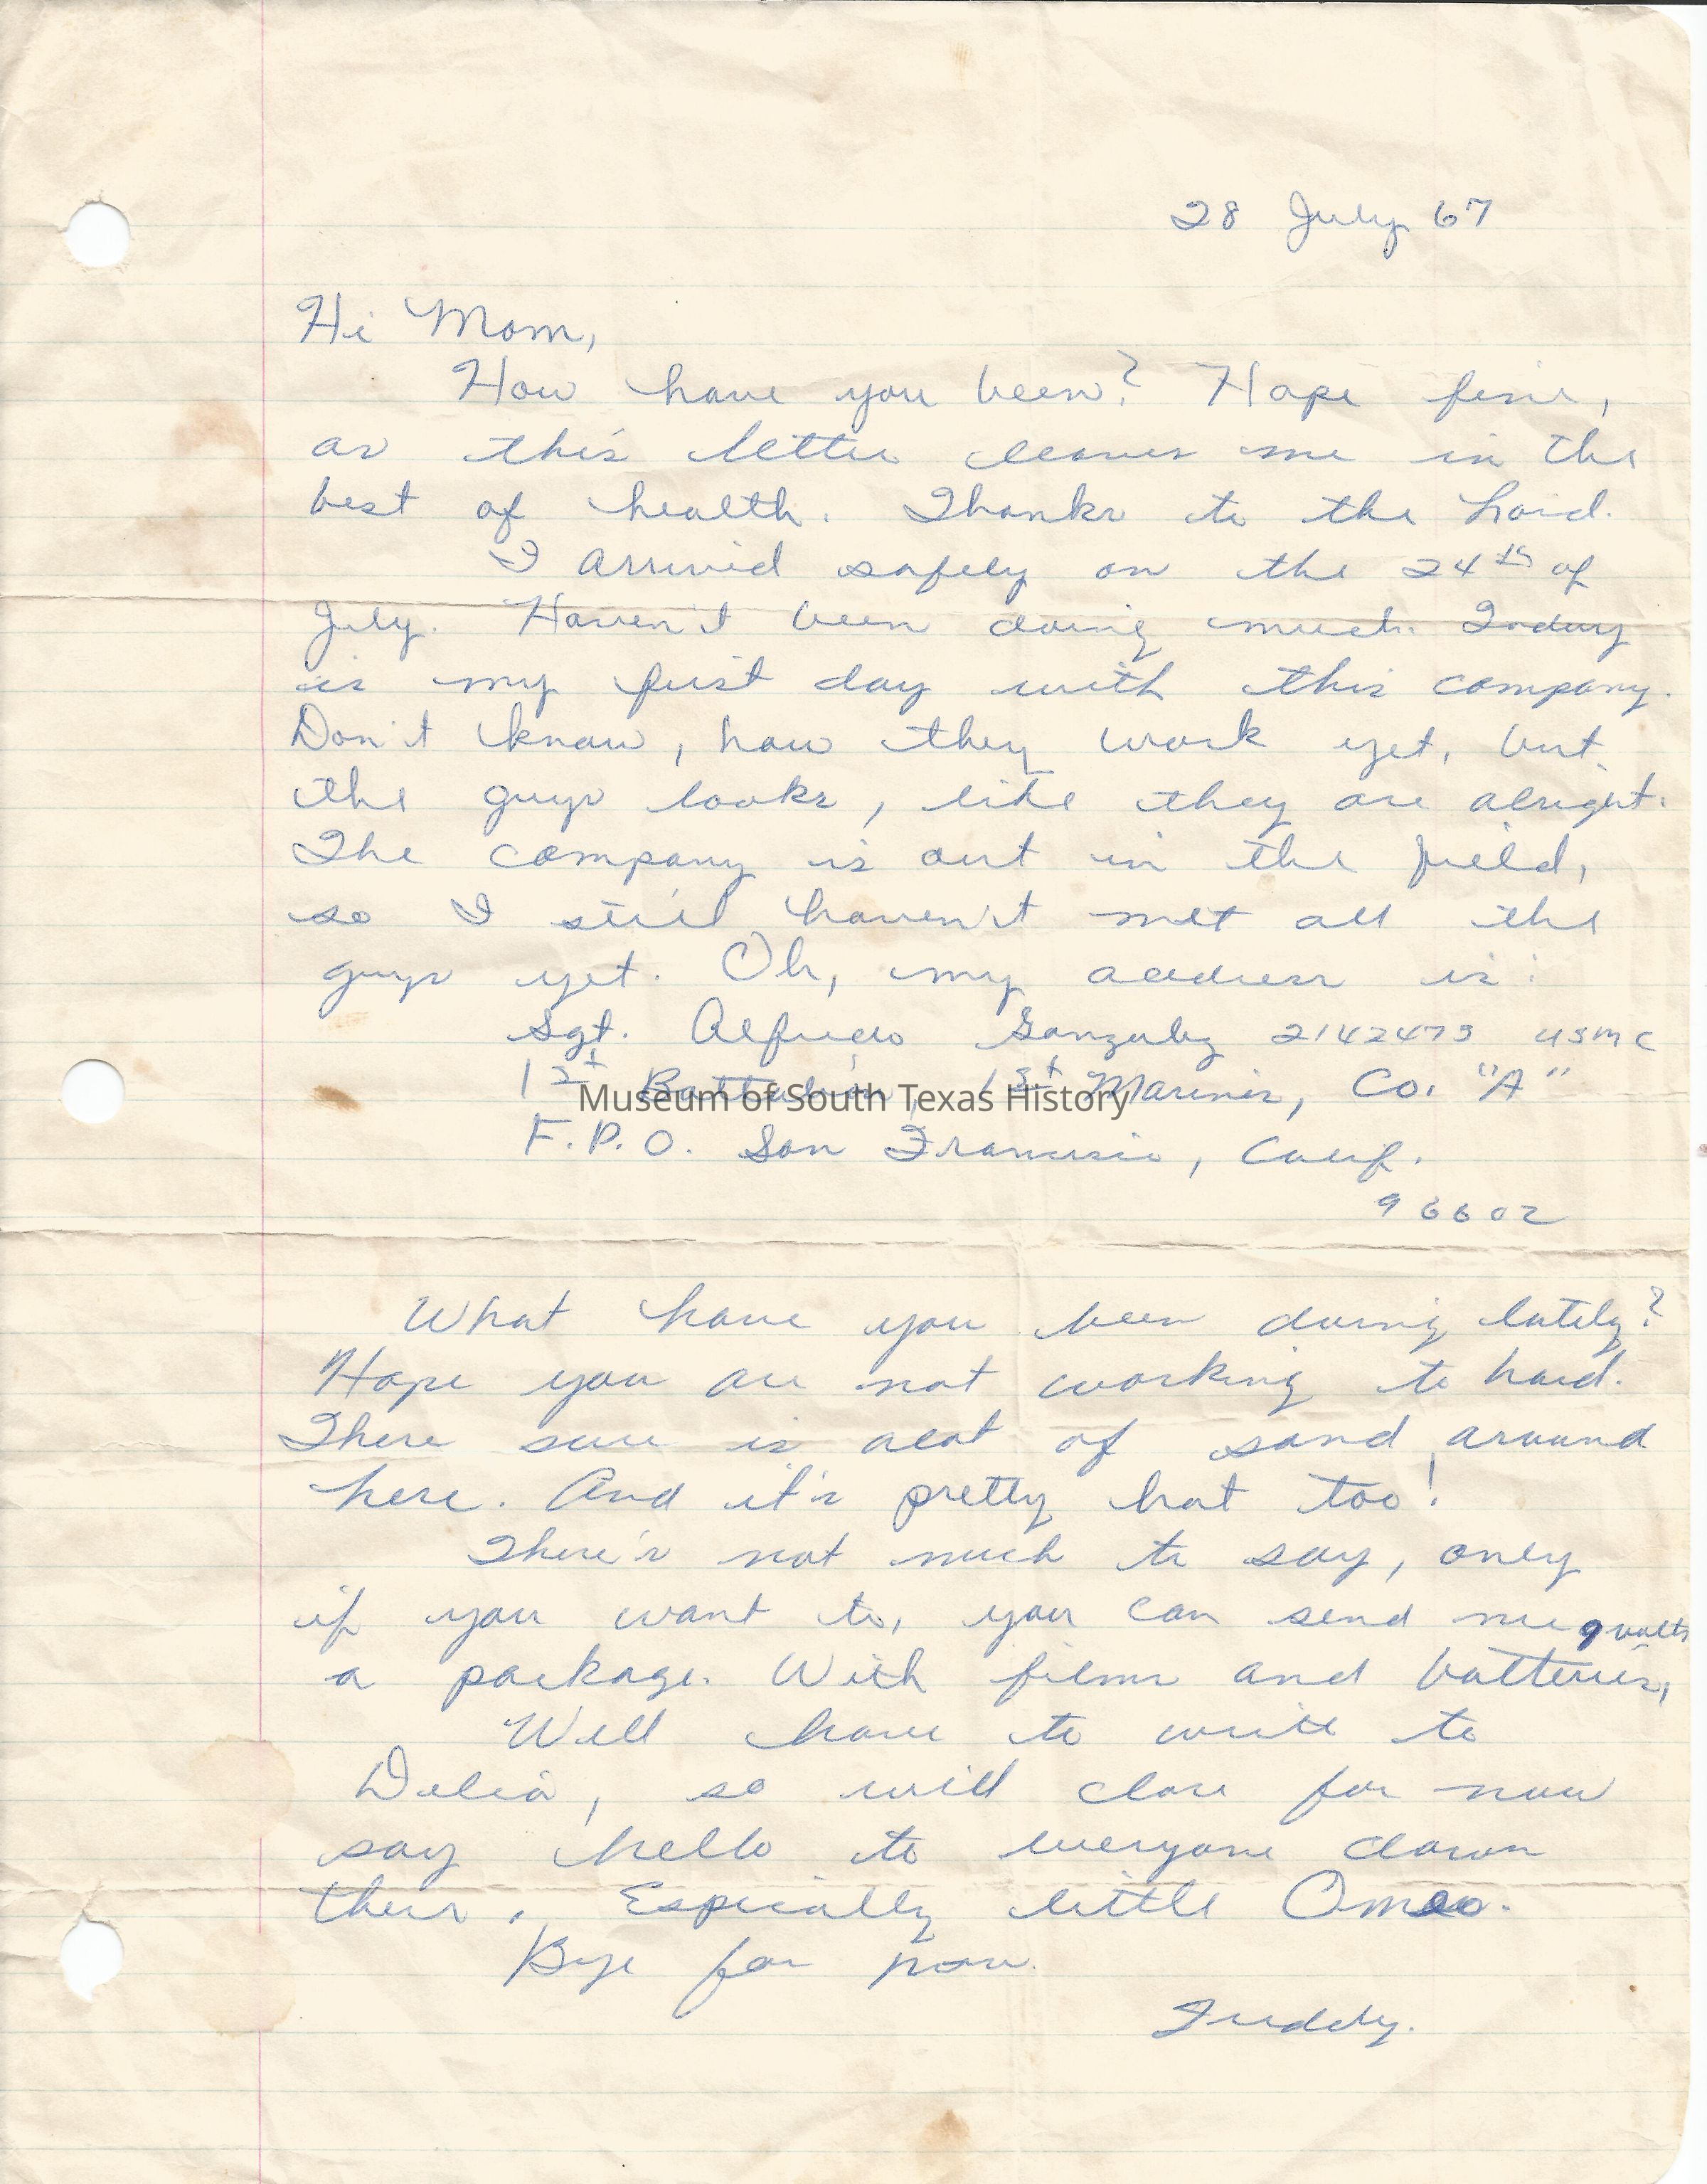 28 July 67
Hi Mom,
How have you been? Hope fine,
as this letter leaves me in the
best of health. Thanks to the Lord.
I arrived safely on the 24th of
July. Haven't been doing much. Today
is my first day with this company.
Don't know, how they work yet, but
the guys looks, like they are alright.
The company is out in the field,
so I still haven't met all the
guys yet. Oh, my address is:
Sgt. Alfredo Gonzalez 2142473 USMC
1st Battalion, 1st Marines, Co. "A"
Museum of South Texas History
F.P.O. San Francisco, Calif.
96602
What have you been doing lately?
Hope you are not working to hard.
There sure is alot of sand around
here. And it's pretty hot too!
There's not much to say, only
if you want to, you can send me 9 volts
a package. With films and batteries,
Well have to write to
Delia, so will close for now
say hello to everyone down
there. Especially little Omeo.
Bye for now.
Freddy.